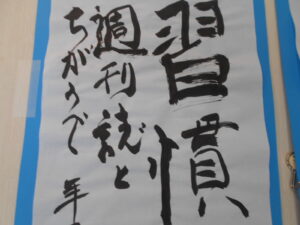 習慣
週刊誌と
ちがうべ 年